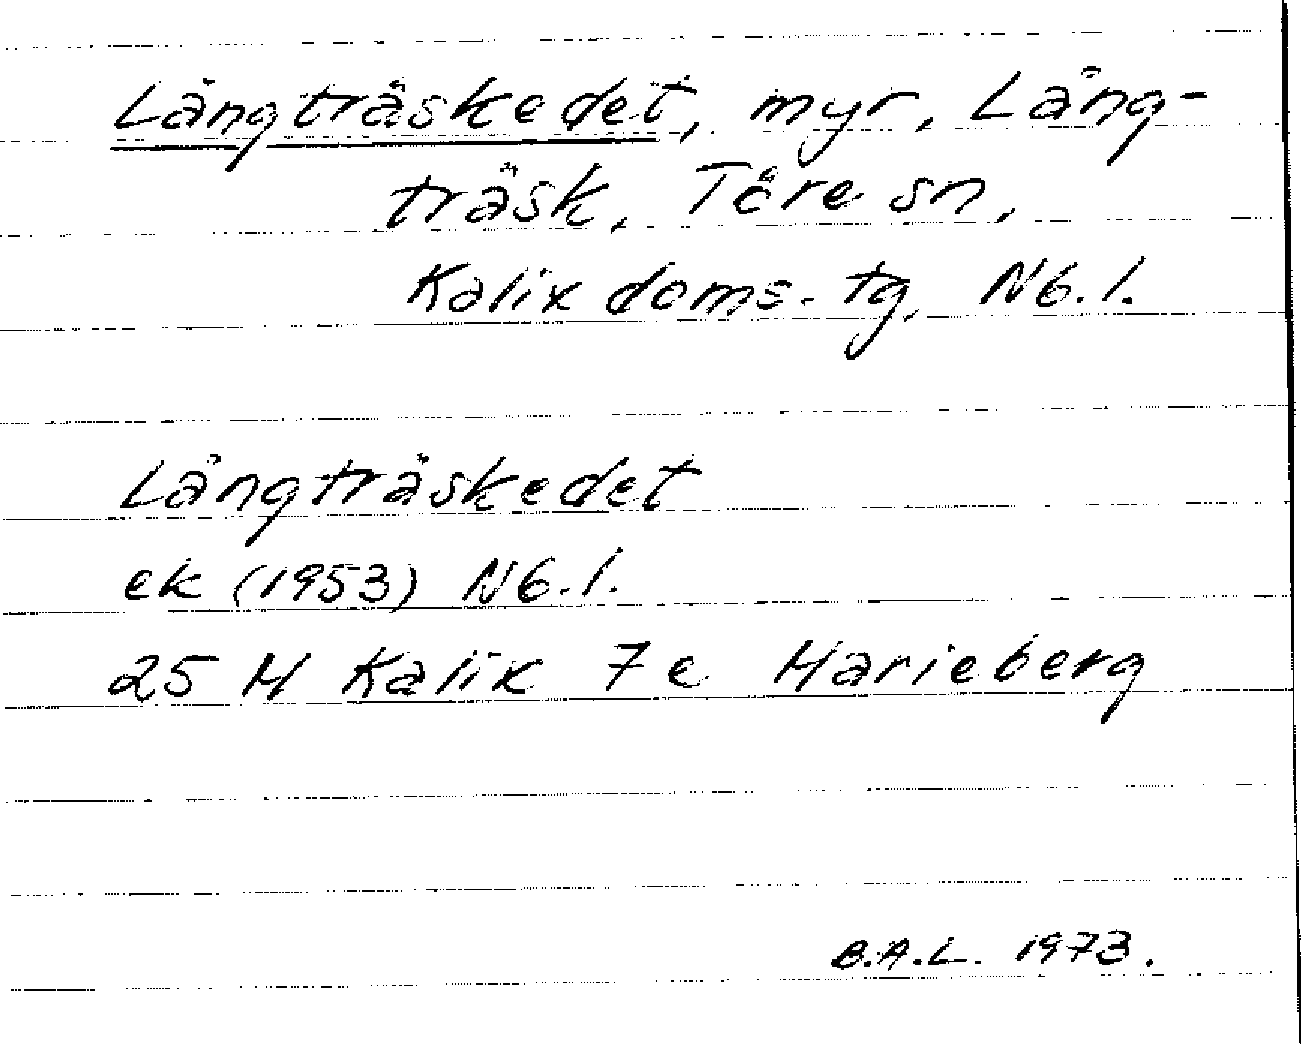 Långträskedet, myr, Lång-
träsk, Töre sn,
Kalix doms. tg, Nb. l.
Långträskedet
ek (1953) Nb. l.
25 M Kalix 7 e Marieberg
B.A.L. 1973.